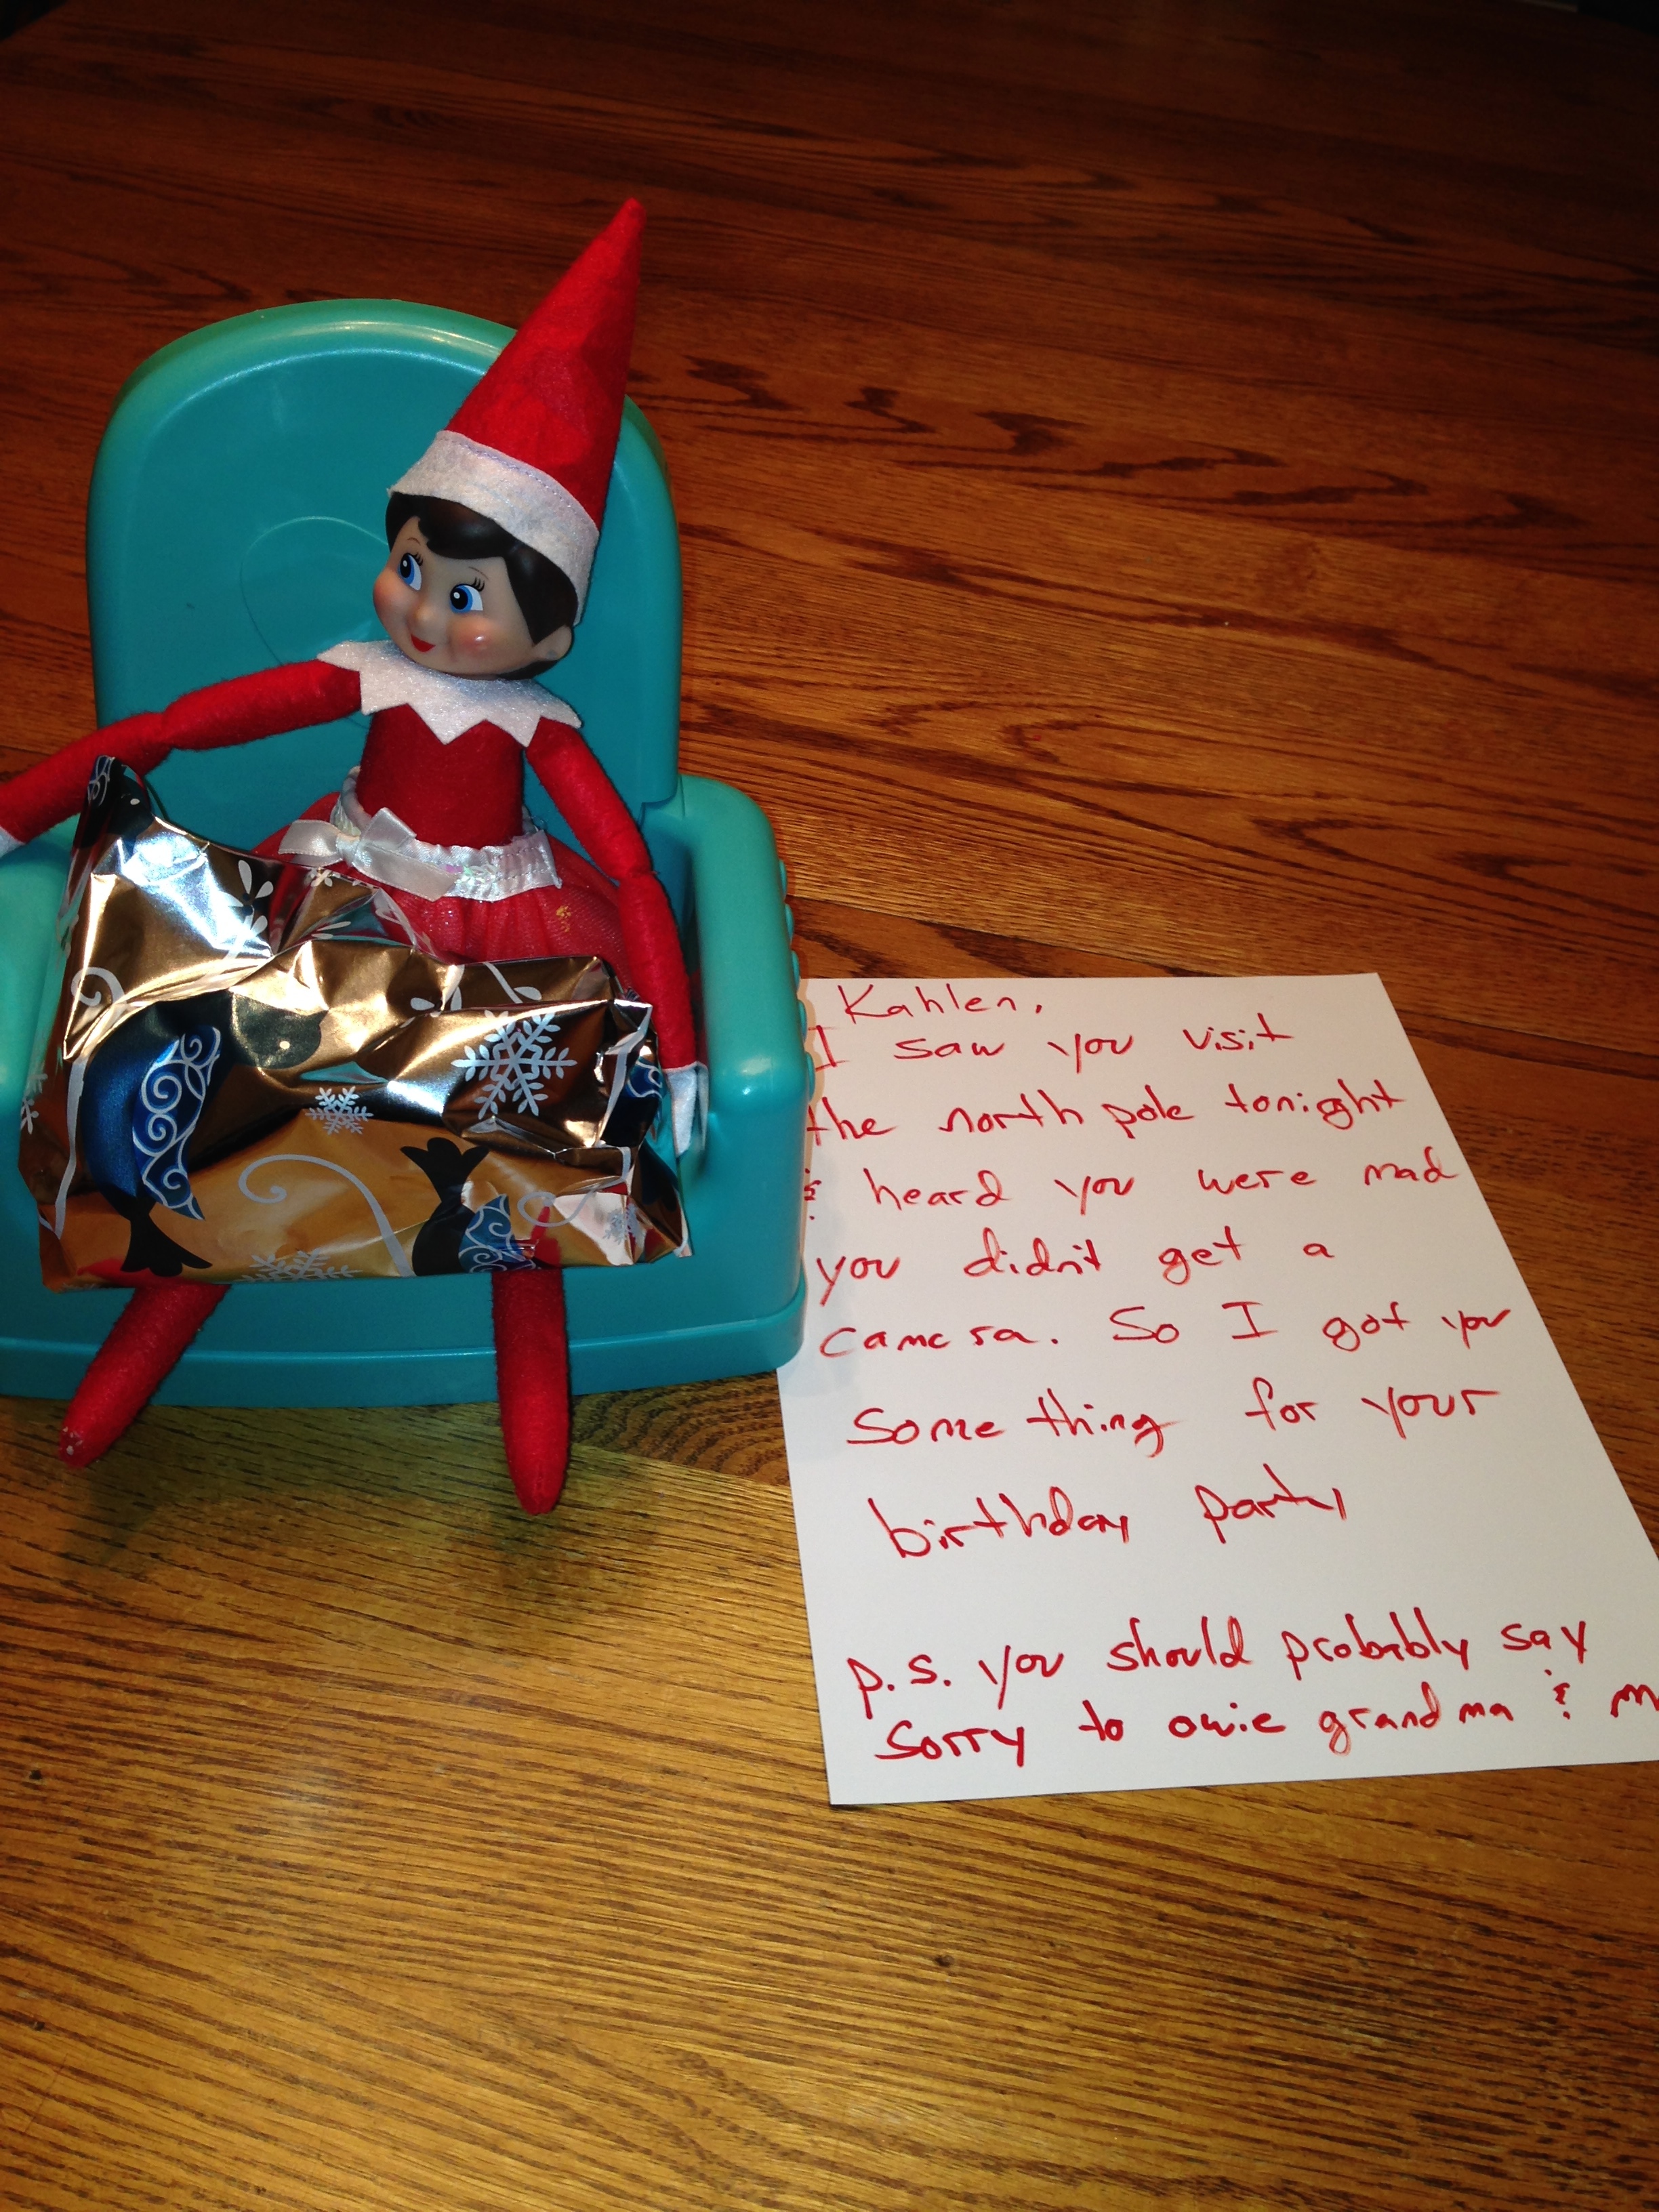 Kahlen,
I saw you visit
the north pole tonight
& heard you were mad
you didn't get a
camera. So I got you
something for your
birthday party
p.s. you should probably say
sorry to owie grandma & m